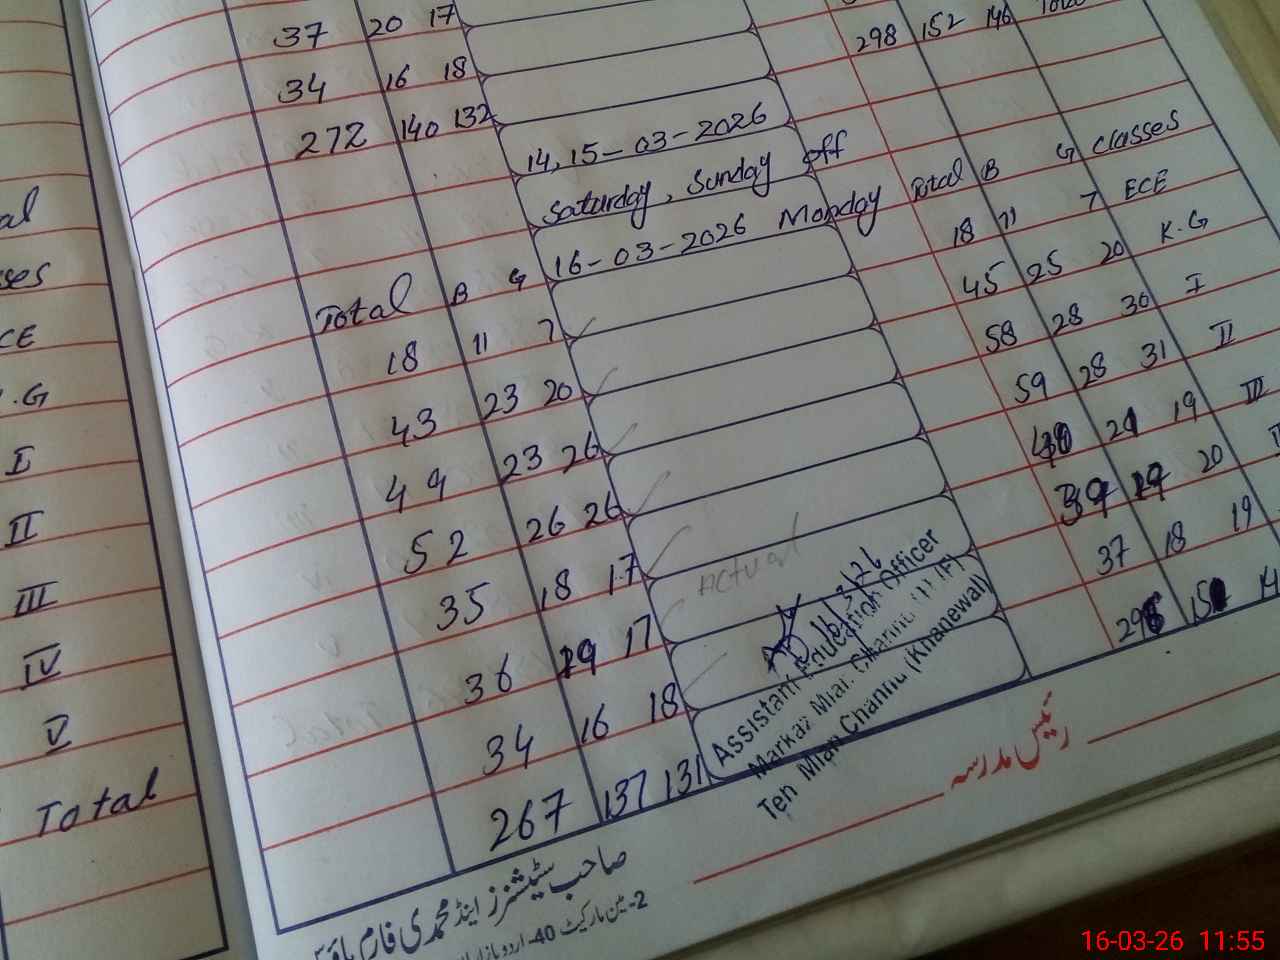 37 20 17
298 152 146 Total
34 16 18
272 140 132
14, 15-03-2026
Saturday, Sunday off
16-03-2026 Monday
Total B G
Total B G classes
18 11 7
18 11 7 ECE
43 23 20
45 25 20 K.G
49 23 26
58 28 30 I
52 26 26
59 28 31 II
35 18 17
19 III
36 19 17
39 19 20
34 16 18
37 18 19
267 137 131
Actual
16/3/26
Assistant Education Officer
Markaz Mian Channu (F)
Mian Channu (Khanewal)
I
II
III
IV
V
Total
رئیس مدرسہ
صاحب سٹیشنرز اینڈ محمدی فارم ہاؤس
2-مین مارکیٹ 40-اردو بازار
16-03-26 11:55